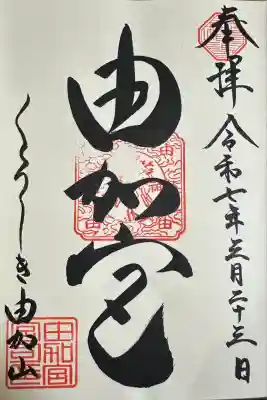 奉拝 令和七年 月二十三日
由加宮
くらしき由加山